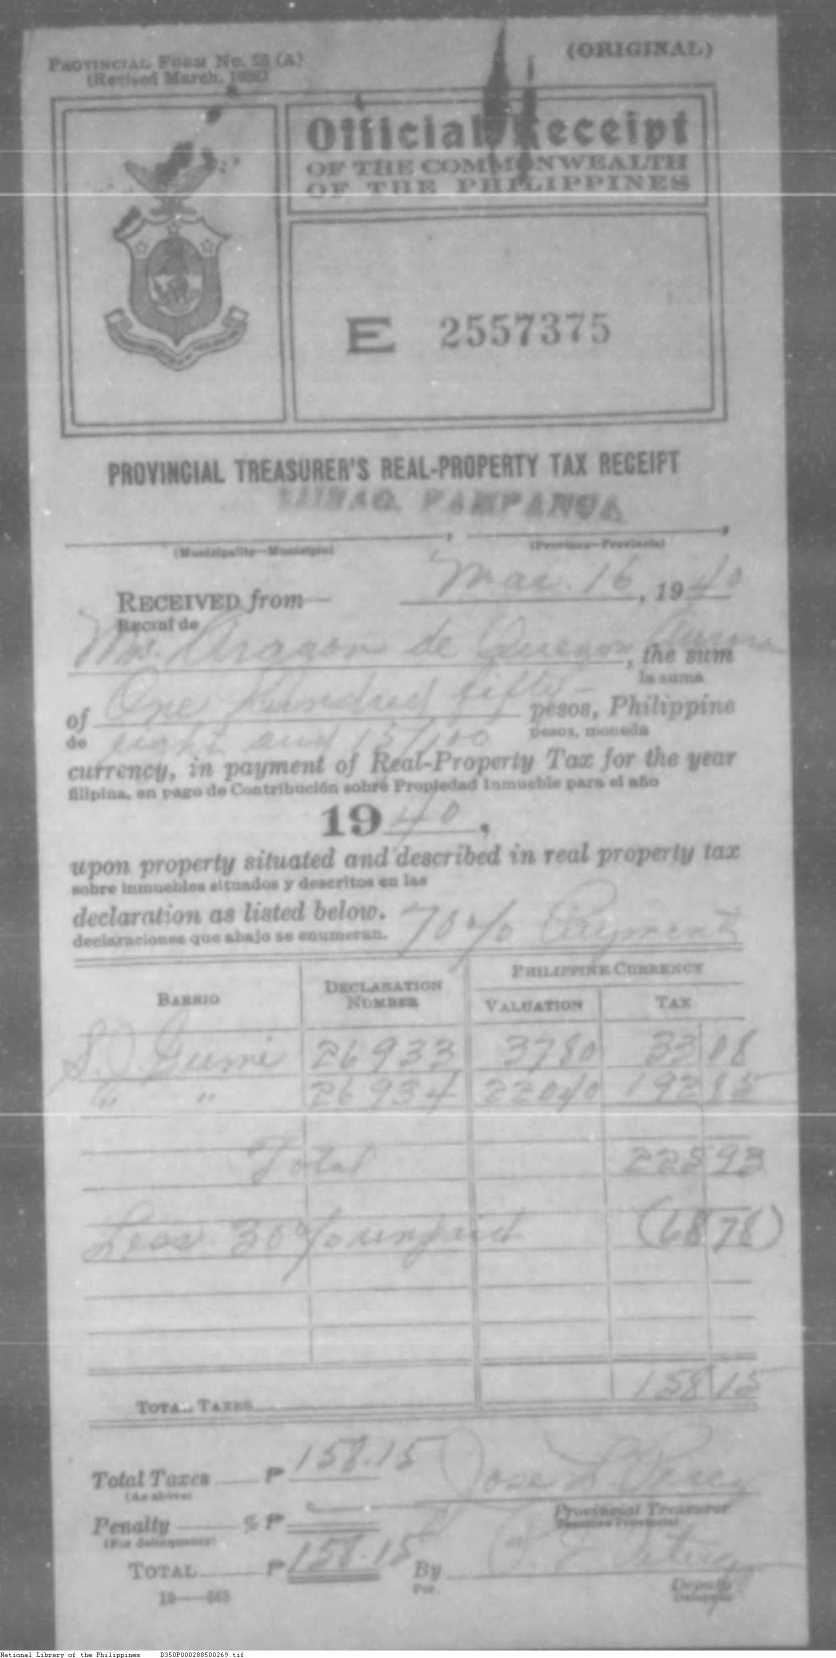 PROVINCIAL FORM No. (A)
(Revised March,
(ORIGINAL)
Official Receipt
OF THE COMMONWEALTH
OF THE PHILIPPINES
E 2557375
PROVINCIAL TREASURER'S REAL-PROPERTY TAX RECEIPT
PAMPANGA
(Municipality—Municipio) (Province—Provincia)
Mar. 16, 1940
RECEIVED from
Recibí de
Mrs. Aragon de Quezon Aurora, the sum
la suma
of One hundred fifty- pesos, Philippine
de eight and 15/100 pesos, moneda
currency, in payment of Real-Property Tax for the year
filipina, en pago de Contribución sobre Propiedad Inmueble para el año
1940,
upon property situated and described in real property tax
sobre inmuebles situados y descritos en las
declaration as listed below. 70% Payment
declaraciones que abajo se enumeran.
BARRIO DECLARATION NUMBER PHILIPPINE CURRENCY
VALUATION TAX
S. J. Gumi 26933 3780 33 08
" " 26934 22040 192 85
Total 225 93
Less 30% unpaid (67 78)
TOTAL TAXES 158 15
Total Taxes ₱ 158.15 Jose L.
(As above)
Provincial Treasurer
Tesorero Provincial
Penalty % ₱
(For delinquency)
TOTAL ₱ 158.15 By
Por
Deputy
Delegado
National Library of the Philippines D350P000288500269.tif